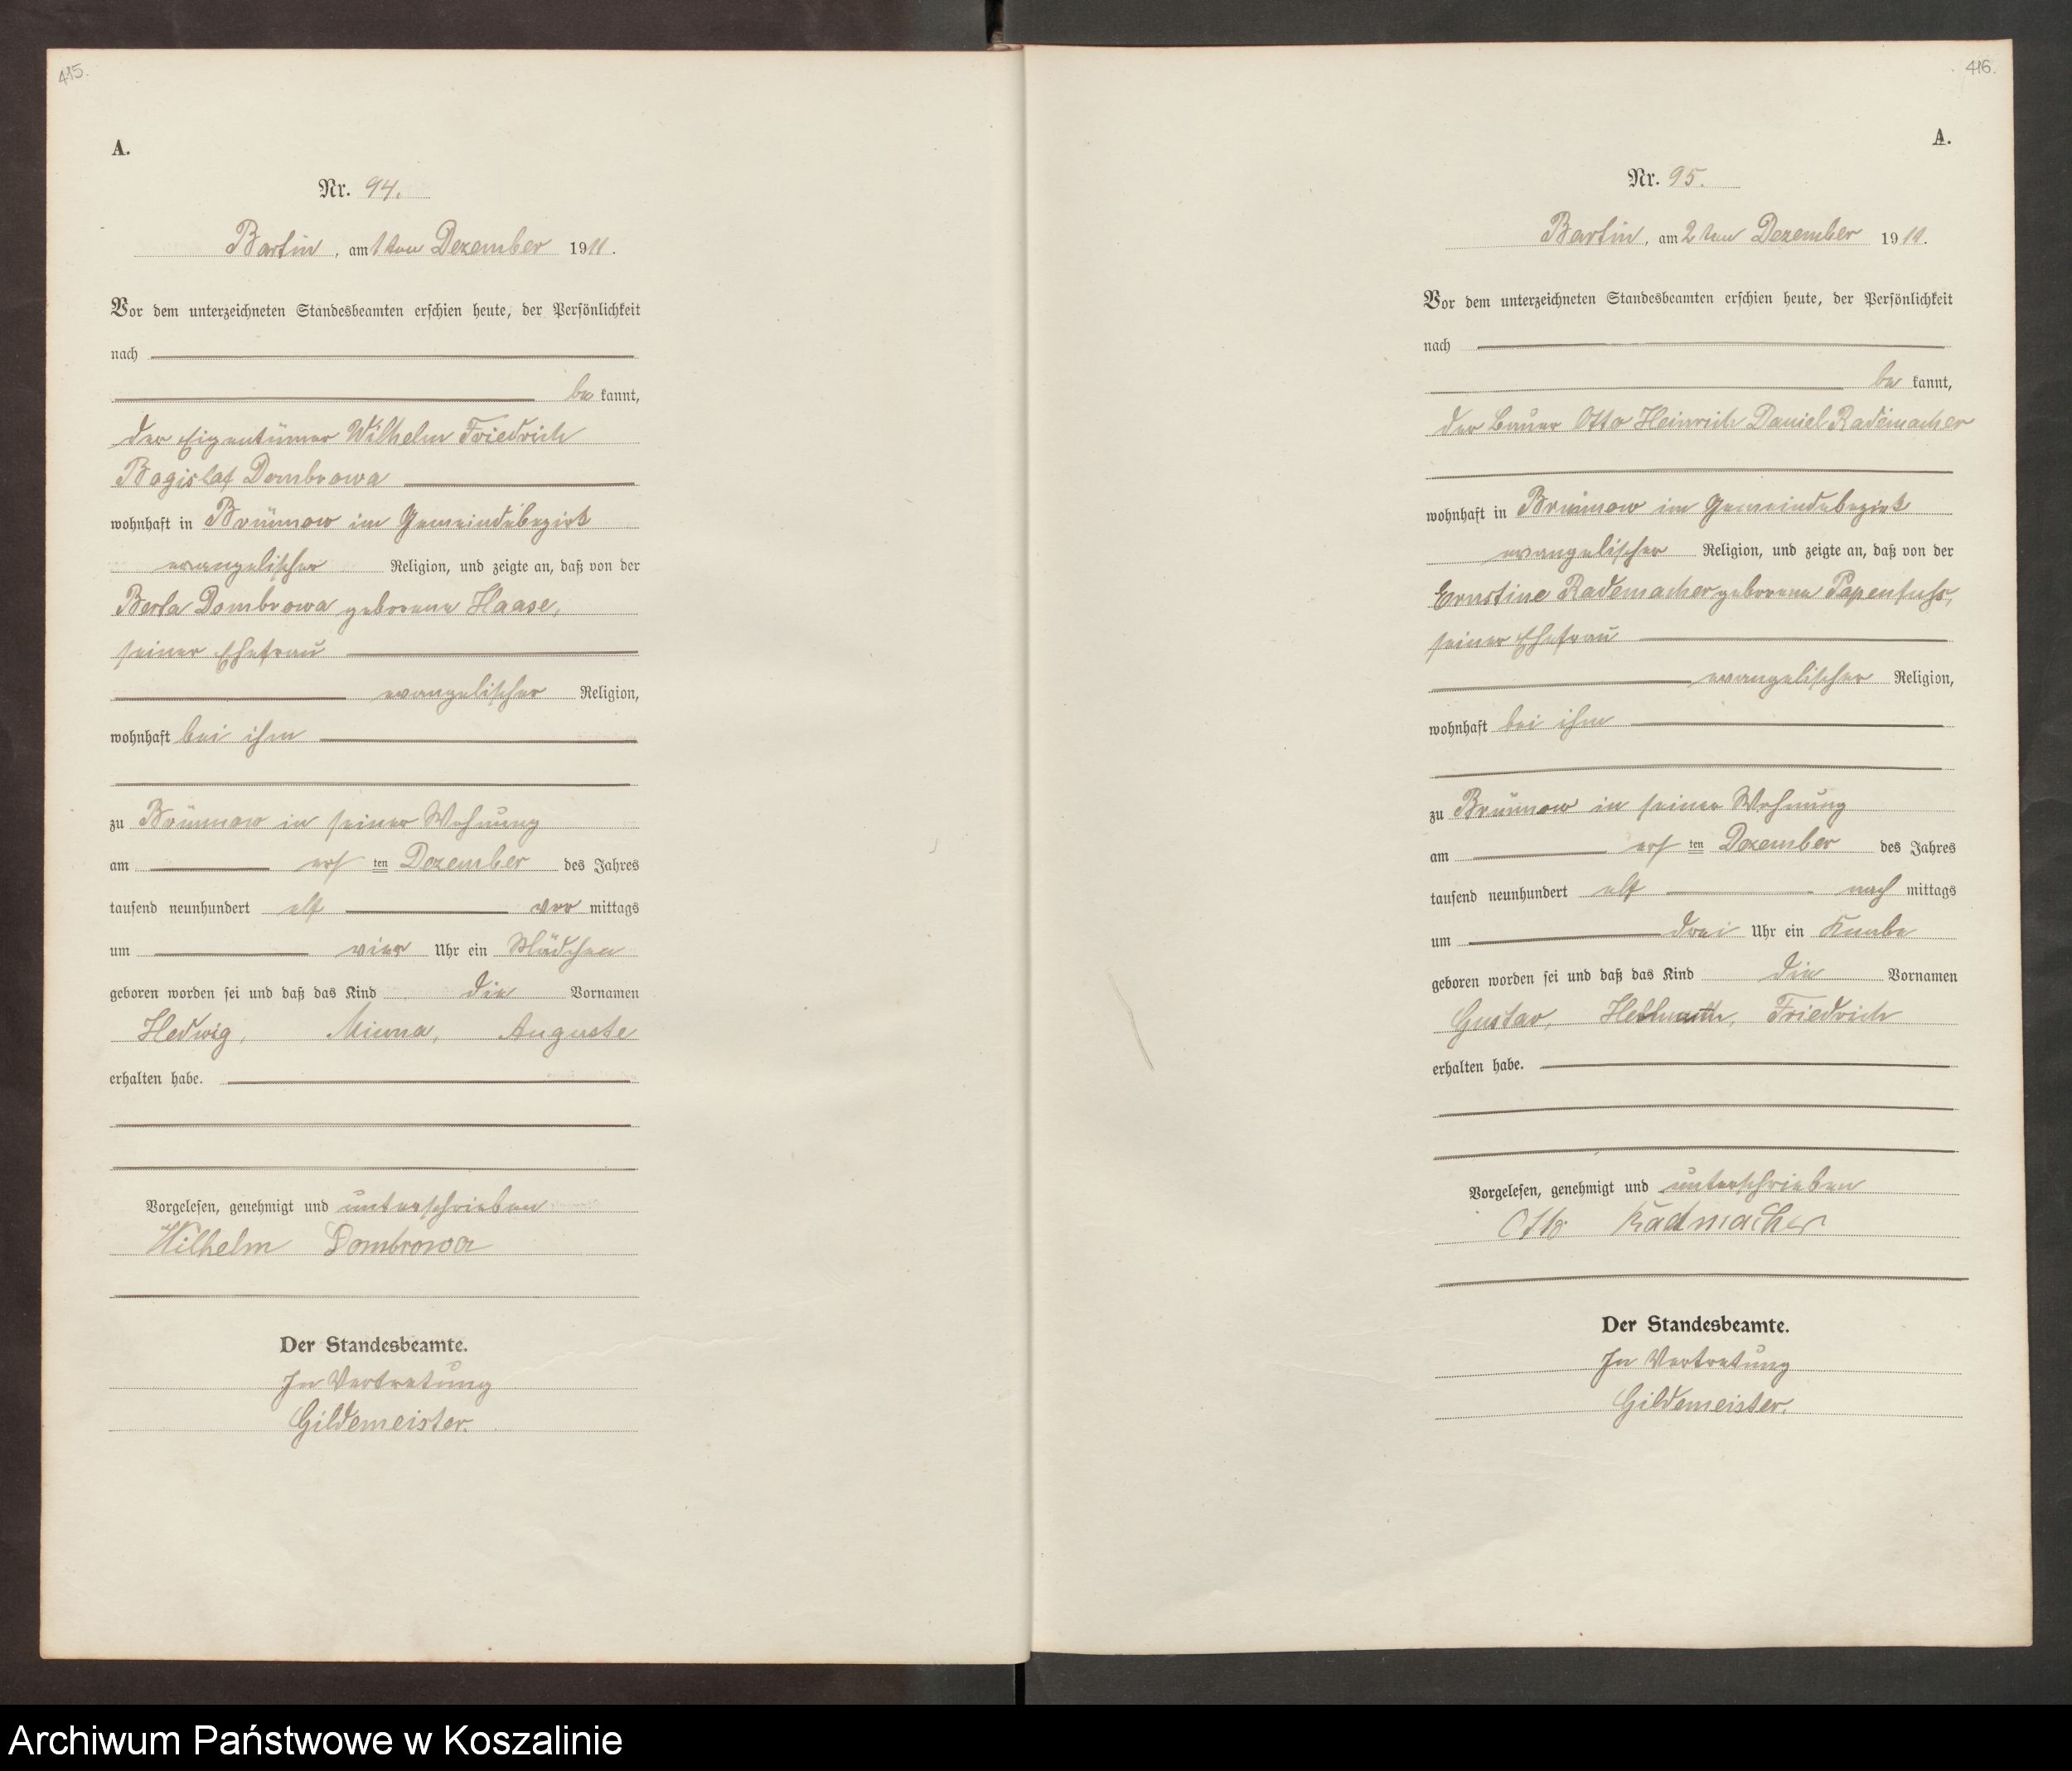 415.
A.
Nr. 94.
Bartin, am 1ten Dezember 1911.
Vor dem unterzeichneten Standesbeamten erschien heute, der Persönlichkeit
nach
be kannt,
der Eigentümer Wilhelm Friedrich
Bogislaf Dombrowa
wohnhaft in Brünnow im Gemeindebezirk
evangelischer Religion, und zeigte an, daß von der
Berta Dombrowa geborene Haase,
seiner Ehefrau
evangelischer Religion,
wohnhaft bei ihm
zu Brünnow in seiner Wohnung
am ers ten Dezember des Jahres
tausend neunhundert elf vor mittags
um vier Uhr ein Mädchen
geboren worden sei und daß das Kind die Vornamen
Hedwig, Minna, Auguste
erhalten habe.
Vorgelesen, genehmigt und unterschrieben
Wilhelm Dombrowa
Der Standesbeamte.
In Vertretung
Gildemeister.
416.
A.
Nr. 95.
Bartin, am 2ten Dezember 1911.
Vor dem unterzeichneten Standesbeamten erschien heute, der Persönlichkeit
nach
be kannt,
der Bauer Otto Heinrich Daniel Rademacher
wohnhaft in Brünnow im Gemeindebezirk
evangelischer Religion, und zeigte an, daß von der
Ernstine Rademacher geborene Papenfuhs,
seiner Ehefrau
evangelischer Religion,
wohnhaft bei ihm
zu Brünnow in seiner Wohnung
am ers ten Dezember des Jahres
tausend neunhundert elf nach mittags
um drei Uhr ein Knabe
geboren worden sei und daß das Kind die Vornamen
Gustav, Hellmuth, Friedrich
erhalten habe.
Vorgelesen, genehmigt und unterschrieben
Otto Radmacher
Der Standesbeamte.
In Vertretung
Gildemeister.
Archiwum Państwowe w Koszalinie